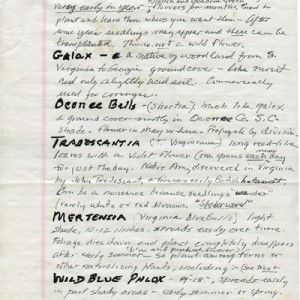 very early in year. Flowers
plant and leave them where you want them - After
one year seedlings may appear and there can be
transplanted. Think not a wild flower.
GALAX - a native of woodland from
Virginia to Georgia ground cover - Like moist
and only slightly acid soil. Commercially
used for corsages.
OCONEE BELLS - (Shortia) much like galax
a ground cover mostly in Oconee Co. S.C.
Shade. Flower in May or June. Propagate by division.
TRADESCANTIA (T. Virginiana) long reed-like
leaves with a Violet Flower (one opens each day
for just the day. Native Am, discovered in Virginia
by John Tradescant, a famous early British botanist.
Can be a nuisance because seedlings
(rarely white or red blossoms. "Spiderwort"
MERTENSIA (Virginia Bluebells) light
shade, 10-12 inches. Spreads easily over time.
Foliage dies down and plant completely disappears
after early summer - so plant among ferns or
other naturalizing plants, including - (see next
WILD BLUE PHLOX - 9-18" - spreads easily
in part shady areas - early summer or spring.